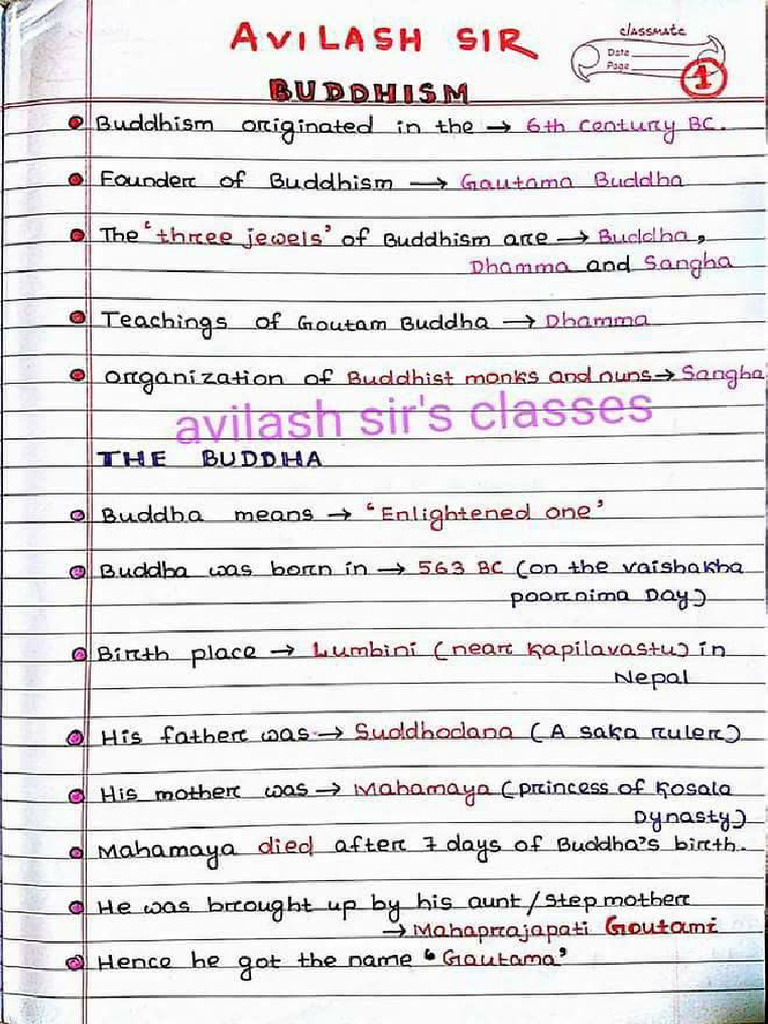 AVILASH SIR
classmate
Date
Page
1
BUDDHISM
Buddhism originated in the → 6th century BC.
Founder of Buddhism → Gautama Buddha
The 'three jewels' of Buddhism are → Buddha,
Dhamma and Sangha
Teachings of Goutam Buddha → Dhamma
organization of Buddhist monks and nuns → Sangha
avilash sir's classes
THE BUDDHA
Buddha means → 'Enlightened one'
Buddha was born in → 563 BC (on the vaishakha
poornima Day)
Birth place → Lumbini (near Kapilavastu) in
Nepal
His father was → Suddhodana (A saka ruler)
His mother was → Mahamaya (princess of Kosala
Dynasty)
Mahamaya died after 7 days of Buddha's birth.
He was brought up by his aunt/step mother
→ Mahaprajapati Goutami
Hence he got the name 'Gautama'